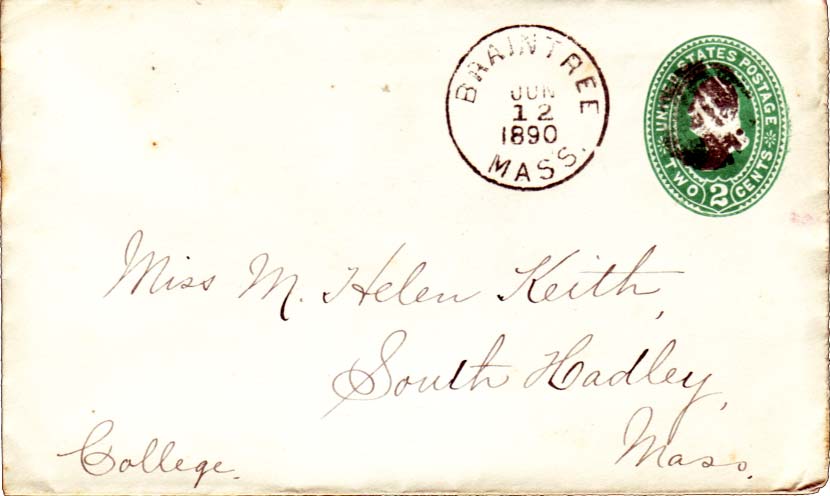 BRAINTREE
JUN
12
1890
MASS.
UNITED STATES POSTAGE
TWO 2 CENTS
Miss M. Helen Keith,
South Hadley,
Mass.
College.